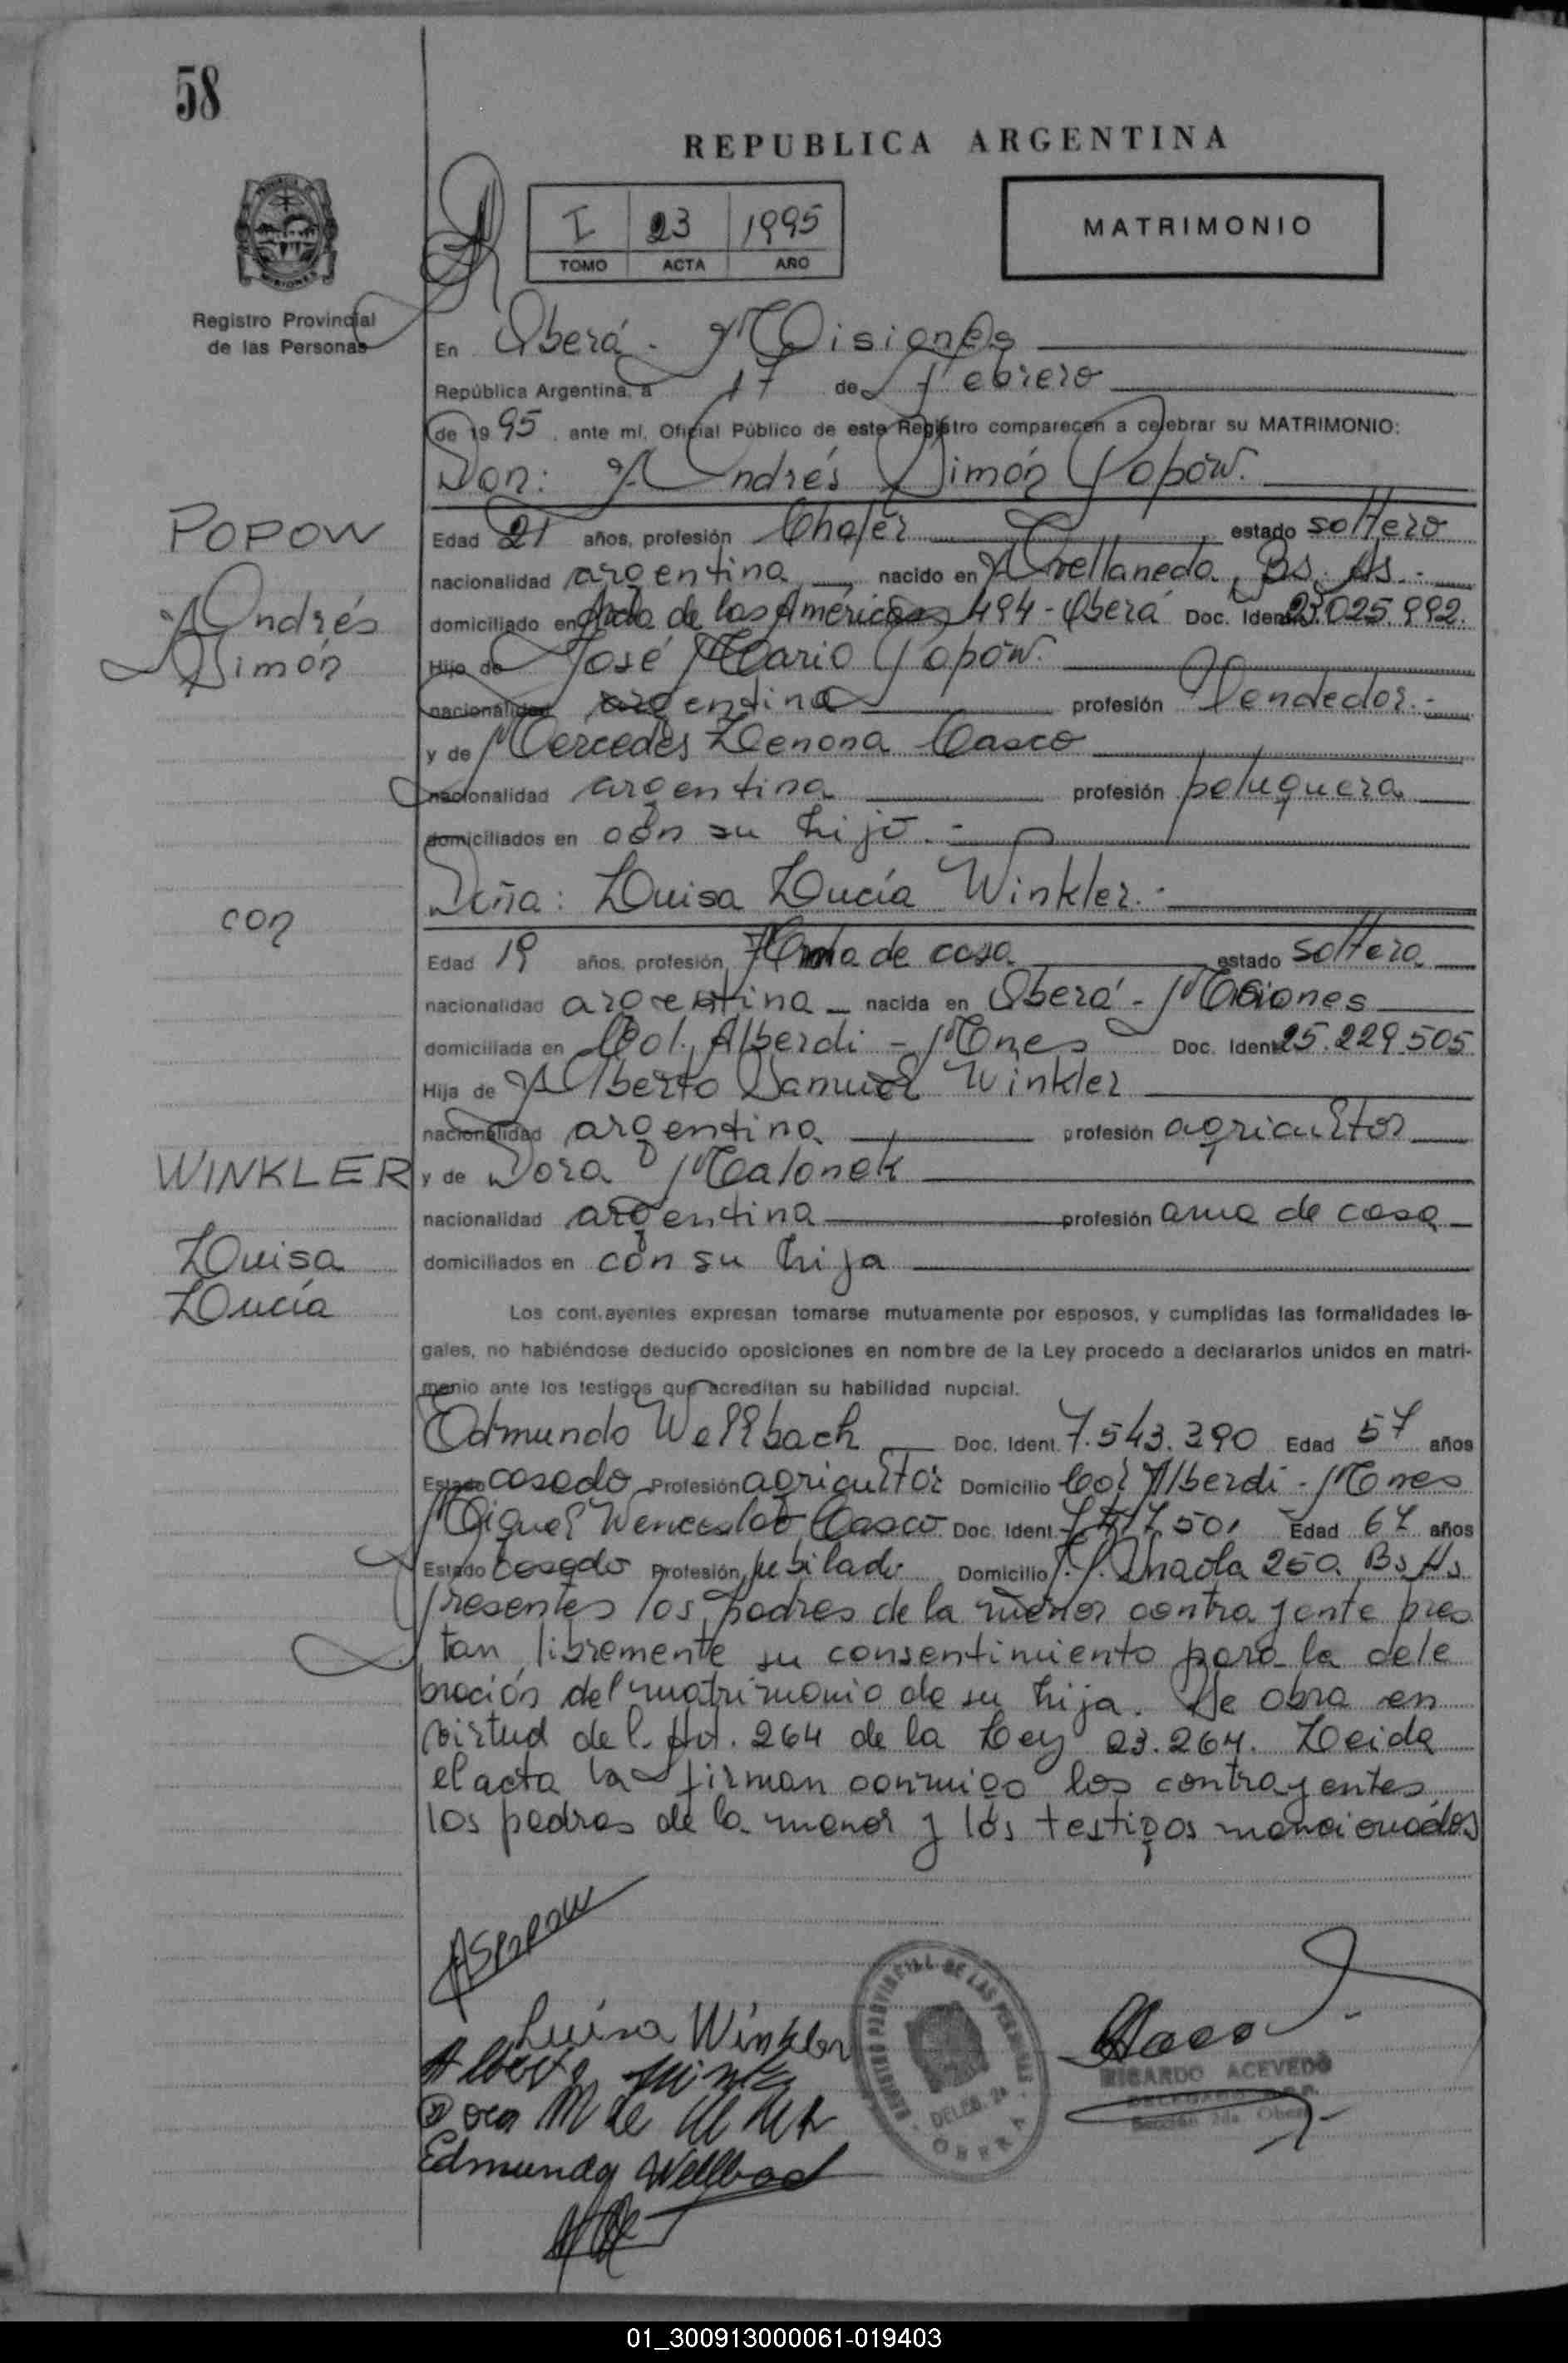 58
REPUBLICA ARGENTINA
I 23 1995
TOMO ACTA AÑO
MATRIMONIO
Registro Provincial
de las Personas
En Oberá - Misiones
República Argentina, a 17 de Febrero
de 1995, ante mí, Oficial Público de este Registro comparecen a celebrar su MATRIMONIO:
Don: Andrés Simón Popow.
POPOW
Andrés
Simón
Edad 21 años, profesión Chofer estado soltero
nacionalidad argentina nacido en Avellaneda, Bs. As.-
domiciliado en Avda de las Américas 494 - Oberá Doc. Ident. 23.025.992.
Hijo de José Mario Popow.
nacionalidad argentina profesión Vendedor.-
y de Mercedes Zenona Casco
nacionalidad argentina profesión peluquera
domiciliados en con su hijo.-
con
Doña: Luisa Lucía Winkler.-
Edad 19 años, profesión Ama de casa estado soltera
nacionalidad argentina nacida en Oberá - Misiones
domiciliada en Col. Alberdi - Mnes Doc. Ident. 25.229.505
Hija de Alberto Samuel Winkler
nacionalidad argentina profesión agricultor
WINKLER
Luisa
Lucía
y de Dora Malonek
nacionalidad argentina profesión ama de casa
domiciliados en con su hija
Los contrayentes expresan tomarse mutuamente por esposos, y cumplidas las formalidades le-
gales, no habiéndose deducido oposiciones en nombre de la Ley procedo a declararlos unidos en matri-
monio ante los testigos que acreditan su habilidad nupcial.
Edmundo Wellbach Doc. Ident. 7.543.390 Edad 57 años
Estado casado Profesión agricultor Domicilio Col Alberdi - Mnes
Miguel Wenceslao Casco Doc. Ident. Edad 67 años
Estado casado Profesión jubilado Domicilio 250 Bs As
Presentes los padres de la menor contrayente pres
tan libremente su consentimiento para la cele
bración del matrimonio de su hija. Se obra en
virtud del Art. 264 de la Ley 23.264. Leida
el acta la firman conmigo los contrayentes
los padres de la menor y los testigos mencionados
ASPopow
Luisa Winkler
Alberto
Dora M de
Edmundo Wellbach
REGISTRO PROVINCIAL DE LAS PERSONAS
DELEG. 2a
OBERA
RICARDO ACEVEDO
DELEGADO
Sección 2da. Oberá
01_300913000061-019403